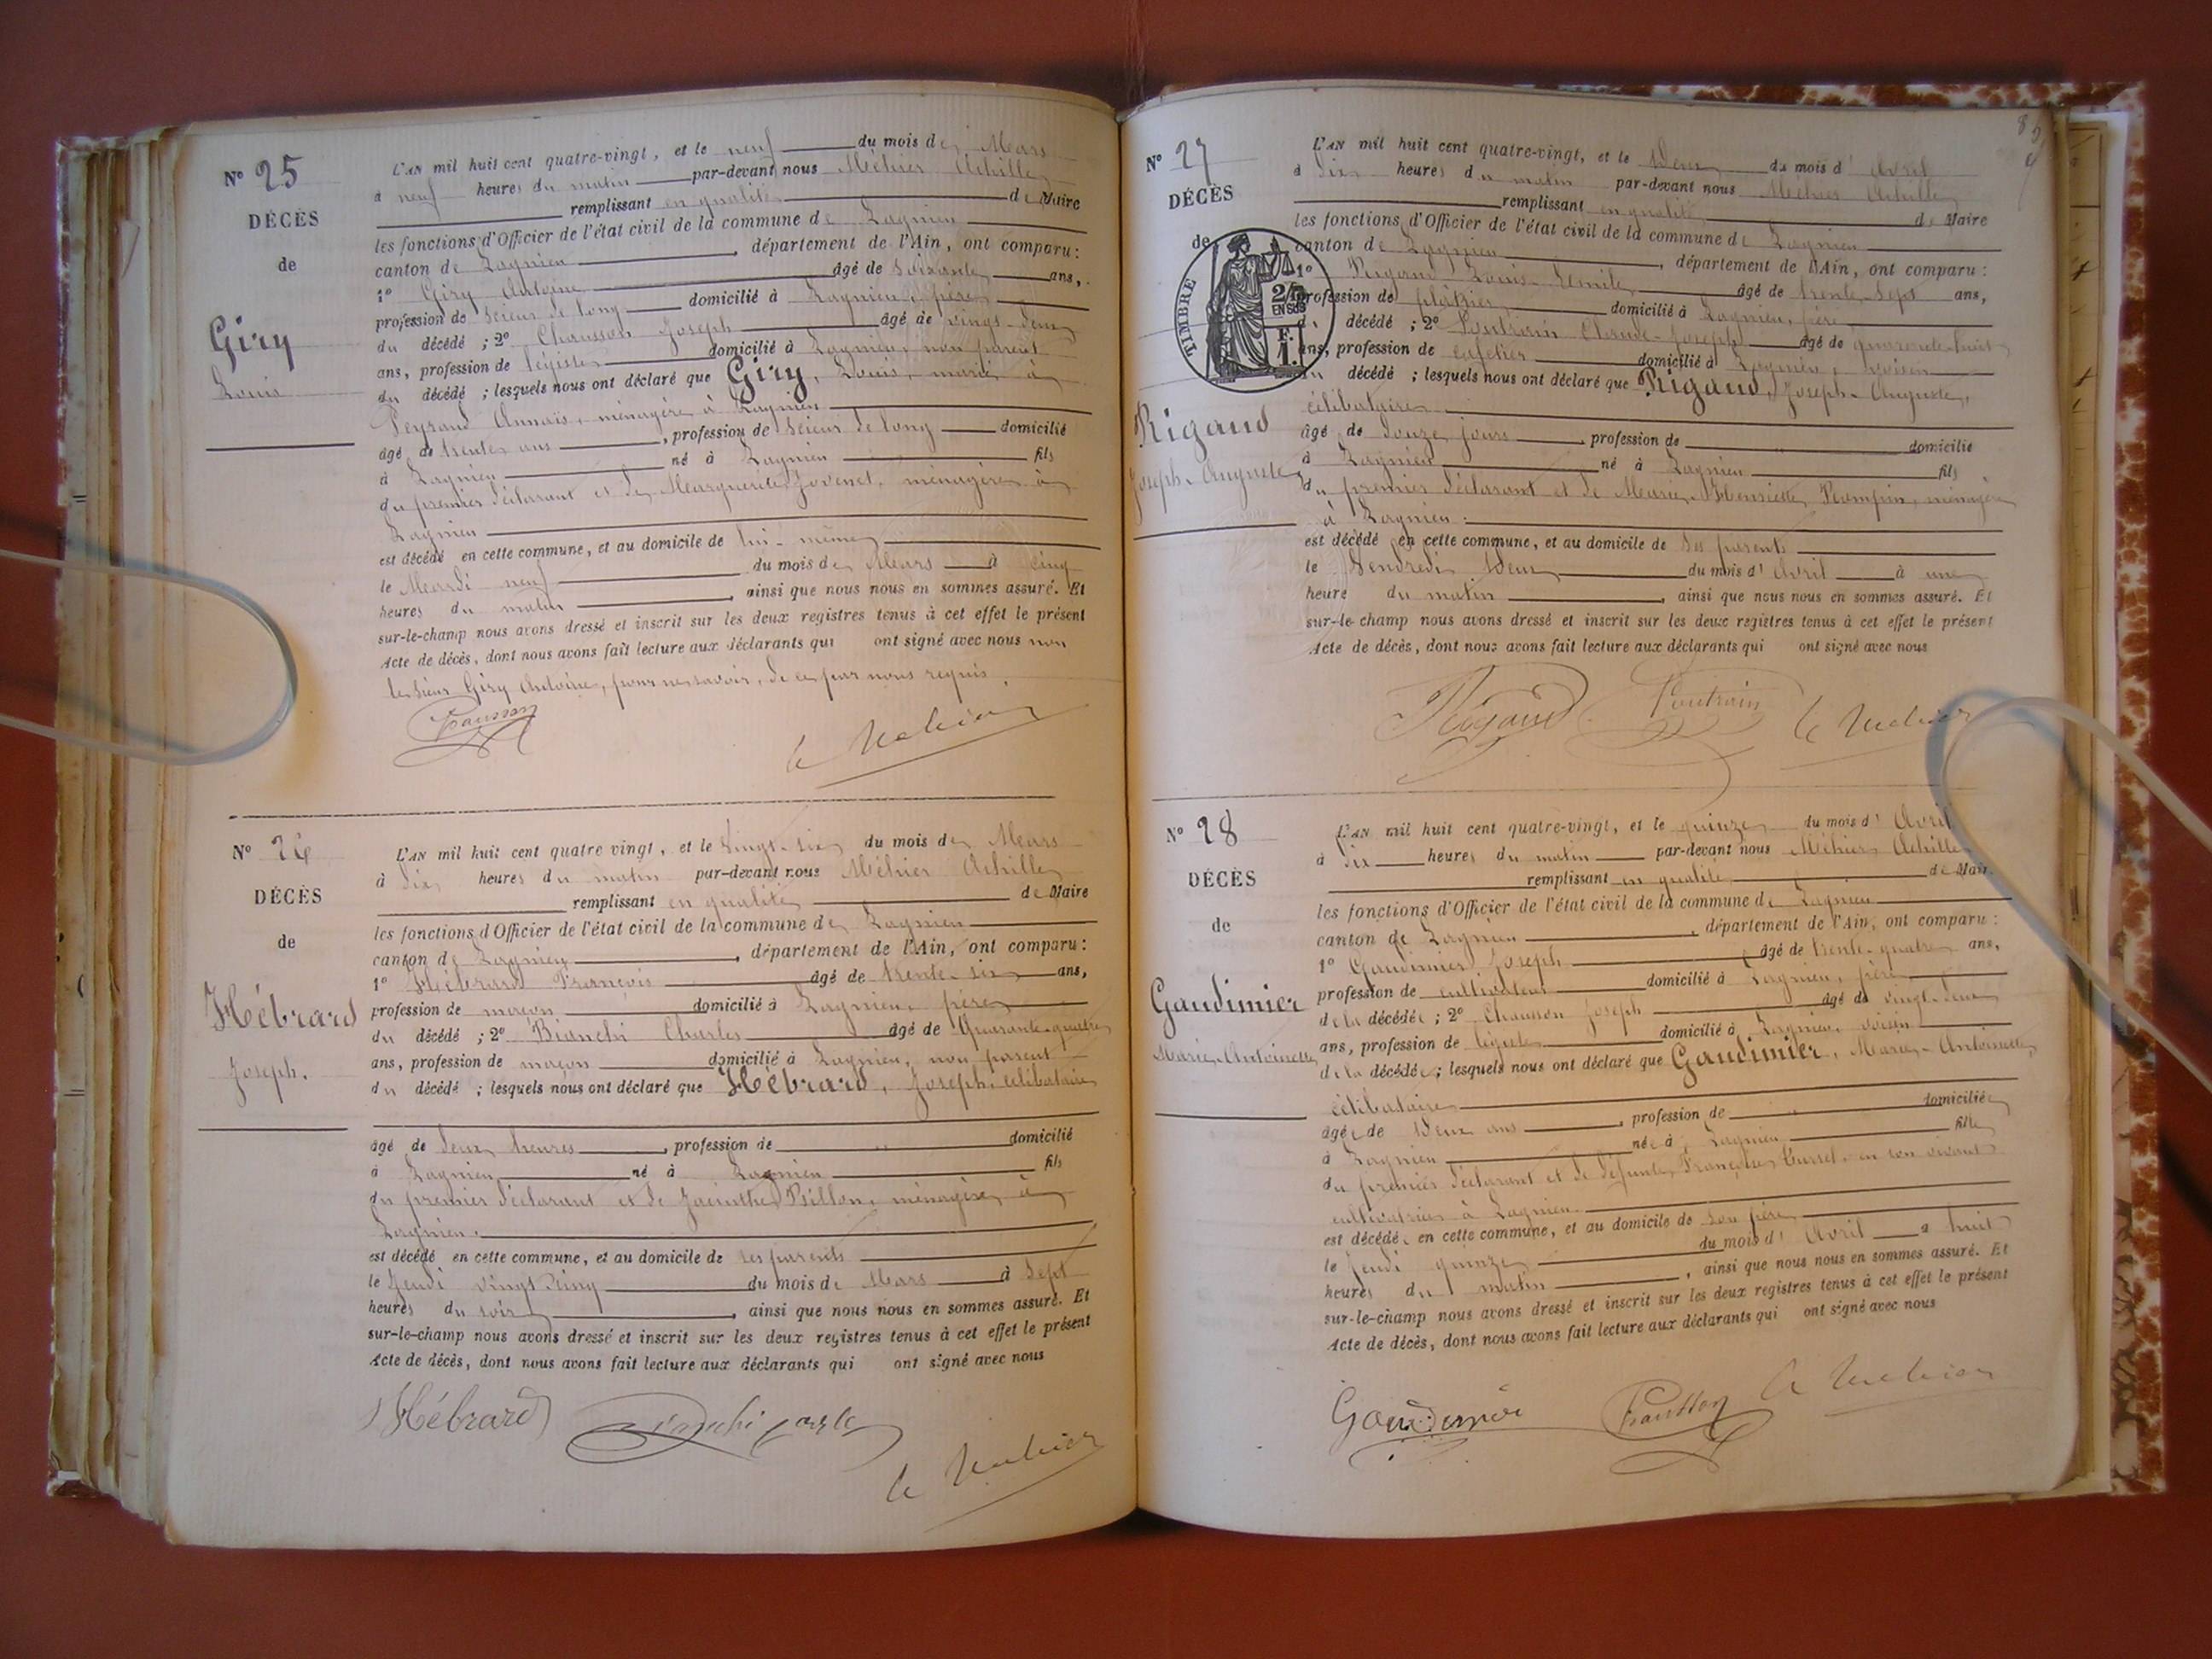 N° 25
DÉCÈS
de
Giry
Louis
L'AN mil huit cent quatre-vingt, et le neuf du mois de Mars
à neuf heures du matin par-devant nous Méhier Achille
remplissant en qualité de Maire
les fonctions d'Officier de l'état civil de la commune de Lagnieu
canton de Lagnieu, département de l'Ain, ont comparu :
1° Giry Antoine âgé de soixante ans,
profession de scieur de long domicilié à Lagnieu, père
du décédé ; 2° Chausson Joseph âgé de vingt-deux
ans, profession de légiste domicilié à Lagnieu, non parent
du décédé ; lesquels nous ont déclaré que Giry, Louis, marié à
Peyraud Annaïs, ménagère à Lagnieu
âgé de trente ans, profession de scieur de long domicilié
à Lagnieu né à Lagnieu fils
du premier déclarant et de Marguerite Jovenet, ménagère à
Lagnieu
est décédé en cette commune, et au domicile de lui-même
le Mardi neuf du mois de Mars à cinq
heures du matin, ainsi que nous nous en sommes assuré. Et
sur-le-champ nous avons dressé et inscrit sur les deux registres tenus à cet effet le présent
Acte de décès, dont nous avons fait lecture aux déclarants qui ont signé avec nous non
le sieur Giry Antoine, pour ne savoir, de ce par nous requis.
Chausson
A Méhier
N° 26
DÉCÈS
de
Hébrard
Joseph.
L'AN mil huit cent quatre vingt, et le vingt-six du mois de Mars
à dix heures du matin par-devant nous Méhier Achille
remplissant en qualité de Maire
les fonctions d'Officier de l'état civil de la commune de Lagnieu
canton de Lagnieu, département de l'Ain, ont comparu :
1° Hébrard François âgé de trente-six ans,
profession de maçon domicilié à Lagnieu, père
du décédé ; 2° Bianchi Charles âgé de Quarante-quatre
ans, profession de maçon domicilié à Lagnieu, non parent
du décédé ; lesquels nous ont déclaré que Hébrard, Joseph, célibataire
âgé de deux heures, profession de domicilié
à Lagnieu né à Lagnieu fils
du premier déclarant et de Jacinthe Billon, ménagère à
Lagnieu.
est décédé en cette commune, et au domicile de ses parents
le Jeudi vingt cinq du mois de Mars à sept
heures du soir, ainsi que nous nous en sommes assuré. Et
sur-le-champ nous avons dressé et inscrit sur les deux registres tenus à cet effet le présent
Acte de décès, dont nous avons fait lecture aux déclarants qui ont signé avec nous
Hébrard Bianchi Carlo
A Méhier
N° 27
DÉCÈS
de
TIMBRE
2/10 EN SUS
F. 1.
Rigaud
Joseph-Auguste
L'AN mil huit cent quatre-vingt, et le deux du mois d'Avril
à dix heures du matin par-devant nous Méhier Achille
remplissant en qualité de Maire
les fonctions d'Officier de l'état civil de la commune de Lagnieu
canton de Lagnieu, département de l'Ain, ont comparu :
1° Rigaud Louis-Emile âgé de trente-sept ans,
profession de plâtrier domicilié à Lagnieu, père
du décédé ; 2° Poutrain Claude-Joseph âgé de quarante-huit
ans, profession de cafetier domicilié à Lagnieu, voisin
du décédé ; lesquels nous ont déclaré que Rigaud, Joseph-Auguste,
célibataire
âgé de douze jours, profession de domicilié
à Lagnieu né à Lagnieu fils
du premier déclarant et de Marie-Henriette ménagère
à Lagnieu.
est décédé en cette commune, et au domicile de ses parents
le Vendredi deux du mois d'Avril à une
heure du matin, ainsi que nous nous en sommes assuré. Et
sur-le-champ nous avons dressé et inscrit sur les deux registres tenus à cet effet le présent
Acte de décès, dont nous avons fait lecture aux déclarants qui ont signé avec nous
Rigaud Poutrain A Méhier
N° 28
DÉCÈS
de
Gaudimier
Marie-Antoinette
L'AN mil huit cent quatre-vingt, et le quinze du mois d'Avril
à dix heures du matin par-devant nous Méhier Achille
remplissant en qualité de Maire
les fonctions d'Officier de l'état civil de la commune de Lagnieu
canton de Lagnieu, département de l'Ain, ont comparu :
1° Gaudimier Joseph âgé de trente-quatre ans,
profession de cultivateur domicilié à Lagnieu, père
de la décédée ; 2° Chausson Joseph âgé de vingt-deux
ans, profession de légiste domicilié à Lagnieu, voisin
de la décédée ; lesquels nous ont déclaré que Gaudimier, Marie-Antoinette,
célibataire
âgée de deux ans, profession de domiciliée
à Lagnieu née à Lagnieu fille
du premier déclarant et de défunte Françoise en son vivant
cultivatrice à Lagnieu.
est décédée en cette commune, et au domicile de son père
le Jeudi quinze du mois d'Avril à huit
heures du matin, ainsi que nous nous en sommes assuré. Et
sur-le-champ nous avons dressé et inscrit sur les deux registres tenus à cet effet le présent
Acte de décès, dont nous avons fait lecture aux déclarants qui ont signé avec nous
Gaudimier Chausson A Méhier